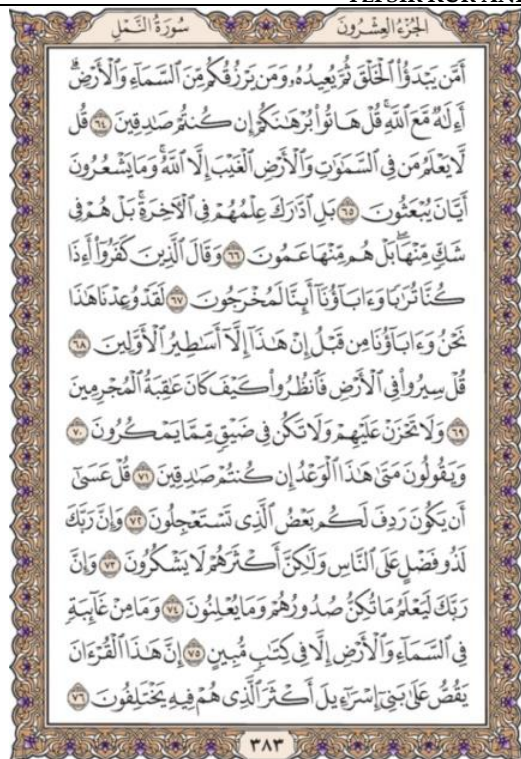 TEFSIR KUR'AN
الجزء العشرون
سورة النمل
أَمَّن يَبْدَؤُا۟ ٱلْخَلْقَ ثُمَّ يُعِيدُهُۥ وَمَن يَرْزُقُكُم مِّنَ ٱلسَّمَآءِ وَٱلْأَرْضِ ۗ
أَءِلَٰهٌ مَّعَ ٱللَّهِ ۚ قُلْ هَاتُوا۟ بُرْهَٰنَكُمْ إِن كُنتُمْ صَٰدِقِينَ ٦٤ قُل
لَّا يَعْلَمُ مَن فِى ٱلسَّمَٰوَٰتِ وَٱلْأَرْضِ ٱلْغَيْبَ إِلَّا ٱللَّهُ ۚ وَمَا يَشْعُرُونَ
أَيَّانَ يُبْعَثُونَ ٦٥ بَلِ ٱدَّٰرَكَ عِلْمُهُمْ فِى ٱلْءَاخِرَةِ ۚ بَلْ هُمْ فِى
شَكٍّ مِّنْهَا ۖ بَلْ هُم مِّنْهَا عَمُونَ ٦٦ وَقَالَ ٱلَّذِينَ كَفَرُوٓا۟ أَءِذَا
كُنَّا تُرَٰبًا وَءَابَآؤُنَآ أَئِنَّا لَمُخْرَجُونَ ٦٧ لَقَدْ وُعِدْنَا هَٰذَا
نَحْنُ وَءَابَآؤُنَا مِن قَبْلُ إِنْ هَٰذَآ إِلَّآ أَسَٰطِيرُ ٱلْأَوَّلِينَ ٦٨
قُلْ سِيرُوا۟ فِى ٱلْأَرْضِ فَٱنظُرُوا۟ كَيْفَ كَانَ عَٰقِبَةُ ٱلْمُجْرِمِينَ
٦٩ وَلَا تَحْزَنْ عَلَيْهِمْ وَلَا تَكُن فِى ضَيْقٍ مِّمَّا يَمْكُرُونَ ٧٠
وَيَقُولُونَ مَتَىٰ هَٰذَا ٱلْوَعْدُ إِن كُنتُمْ صَٰدِقِينَ ٧١ قُلْ عَسَىٰٓ
أَن يَكُونَ رَدِفَ لَكُم بَعْضُ ٱلَّذِى تَسْتَعْجِلُونَ ٧٢ وَإِنَّ رَبَّكَ
لَذُو فَضْلٍ عَلَى ٱلنَّاسِ وَلَٰكِنَّ أَكْثَرَهُمْ لَا يَشْكُرُونَ ٧٣ وَإِنَّ
رَبَّكَ لَيَعْلَمُ مَا تُكِنُّ صُدُورُهُمْ وَمَا يُعْلِنُونَ ٧٤ وَمَا مِنْ غَآئِبَةٍ
فِى ٱلسَّمَآءِ وَٱلْأَرْضِ إِلَّا فِى كِتَٰبٍ مُّبِينٍ ٧٥ إِنَّ هَٰذَا ٱلْقُرْءَانَ
يَقُصُّ عَلَىٰ بَنِىٓ إِسْرَٰٓءِيلَ أَكْثَرَ ٱلَّذِى هُمْ فِيهِ يَخْتَلِفُونَ ٧٦
٣٨٣